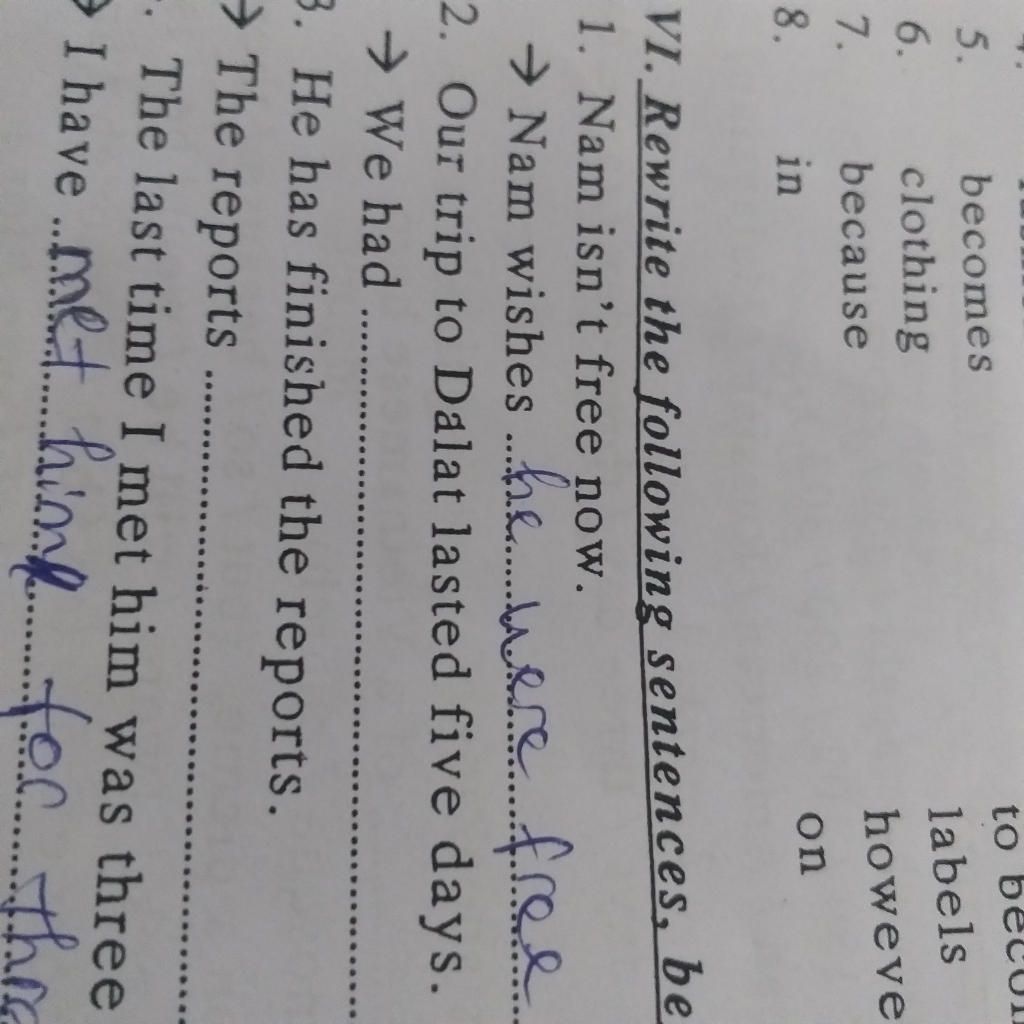 5. becomes
6. clothing labels
7. because
8. in on
VI. Rewrite the following sentences, be
1. Nam isn't free now.
→ Nam wishes ...he were free
2. Our trip to Dalat lasted five days.
→ We had ........
3. He has finished the reports.
→ The reports ........
The last time I met him was three
→ I have ...met him for